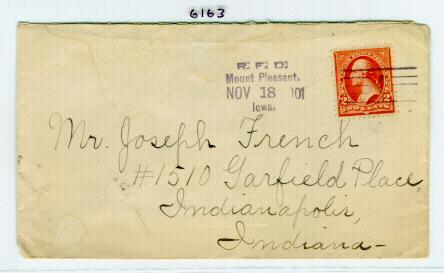 6163
R. F. D.
Mount Pleasant,
NOV 18 1901
Iowa.
2 TWO CENTS 2
Mr. Joseph French
#1510 Garfield Place,
Indianapolis,
Indiana-